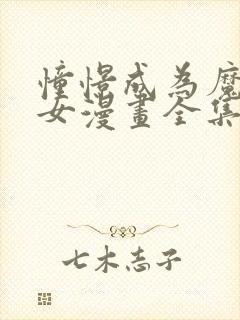 憧憬成為魔
女漫畫全集
七木志子